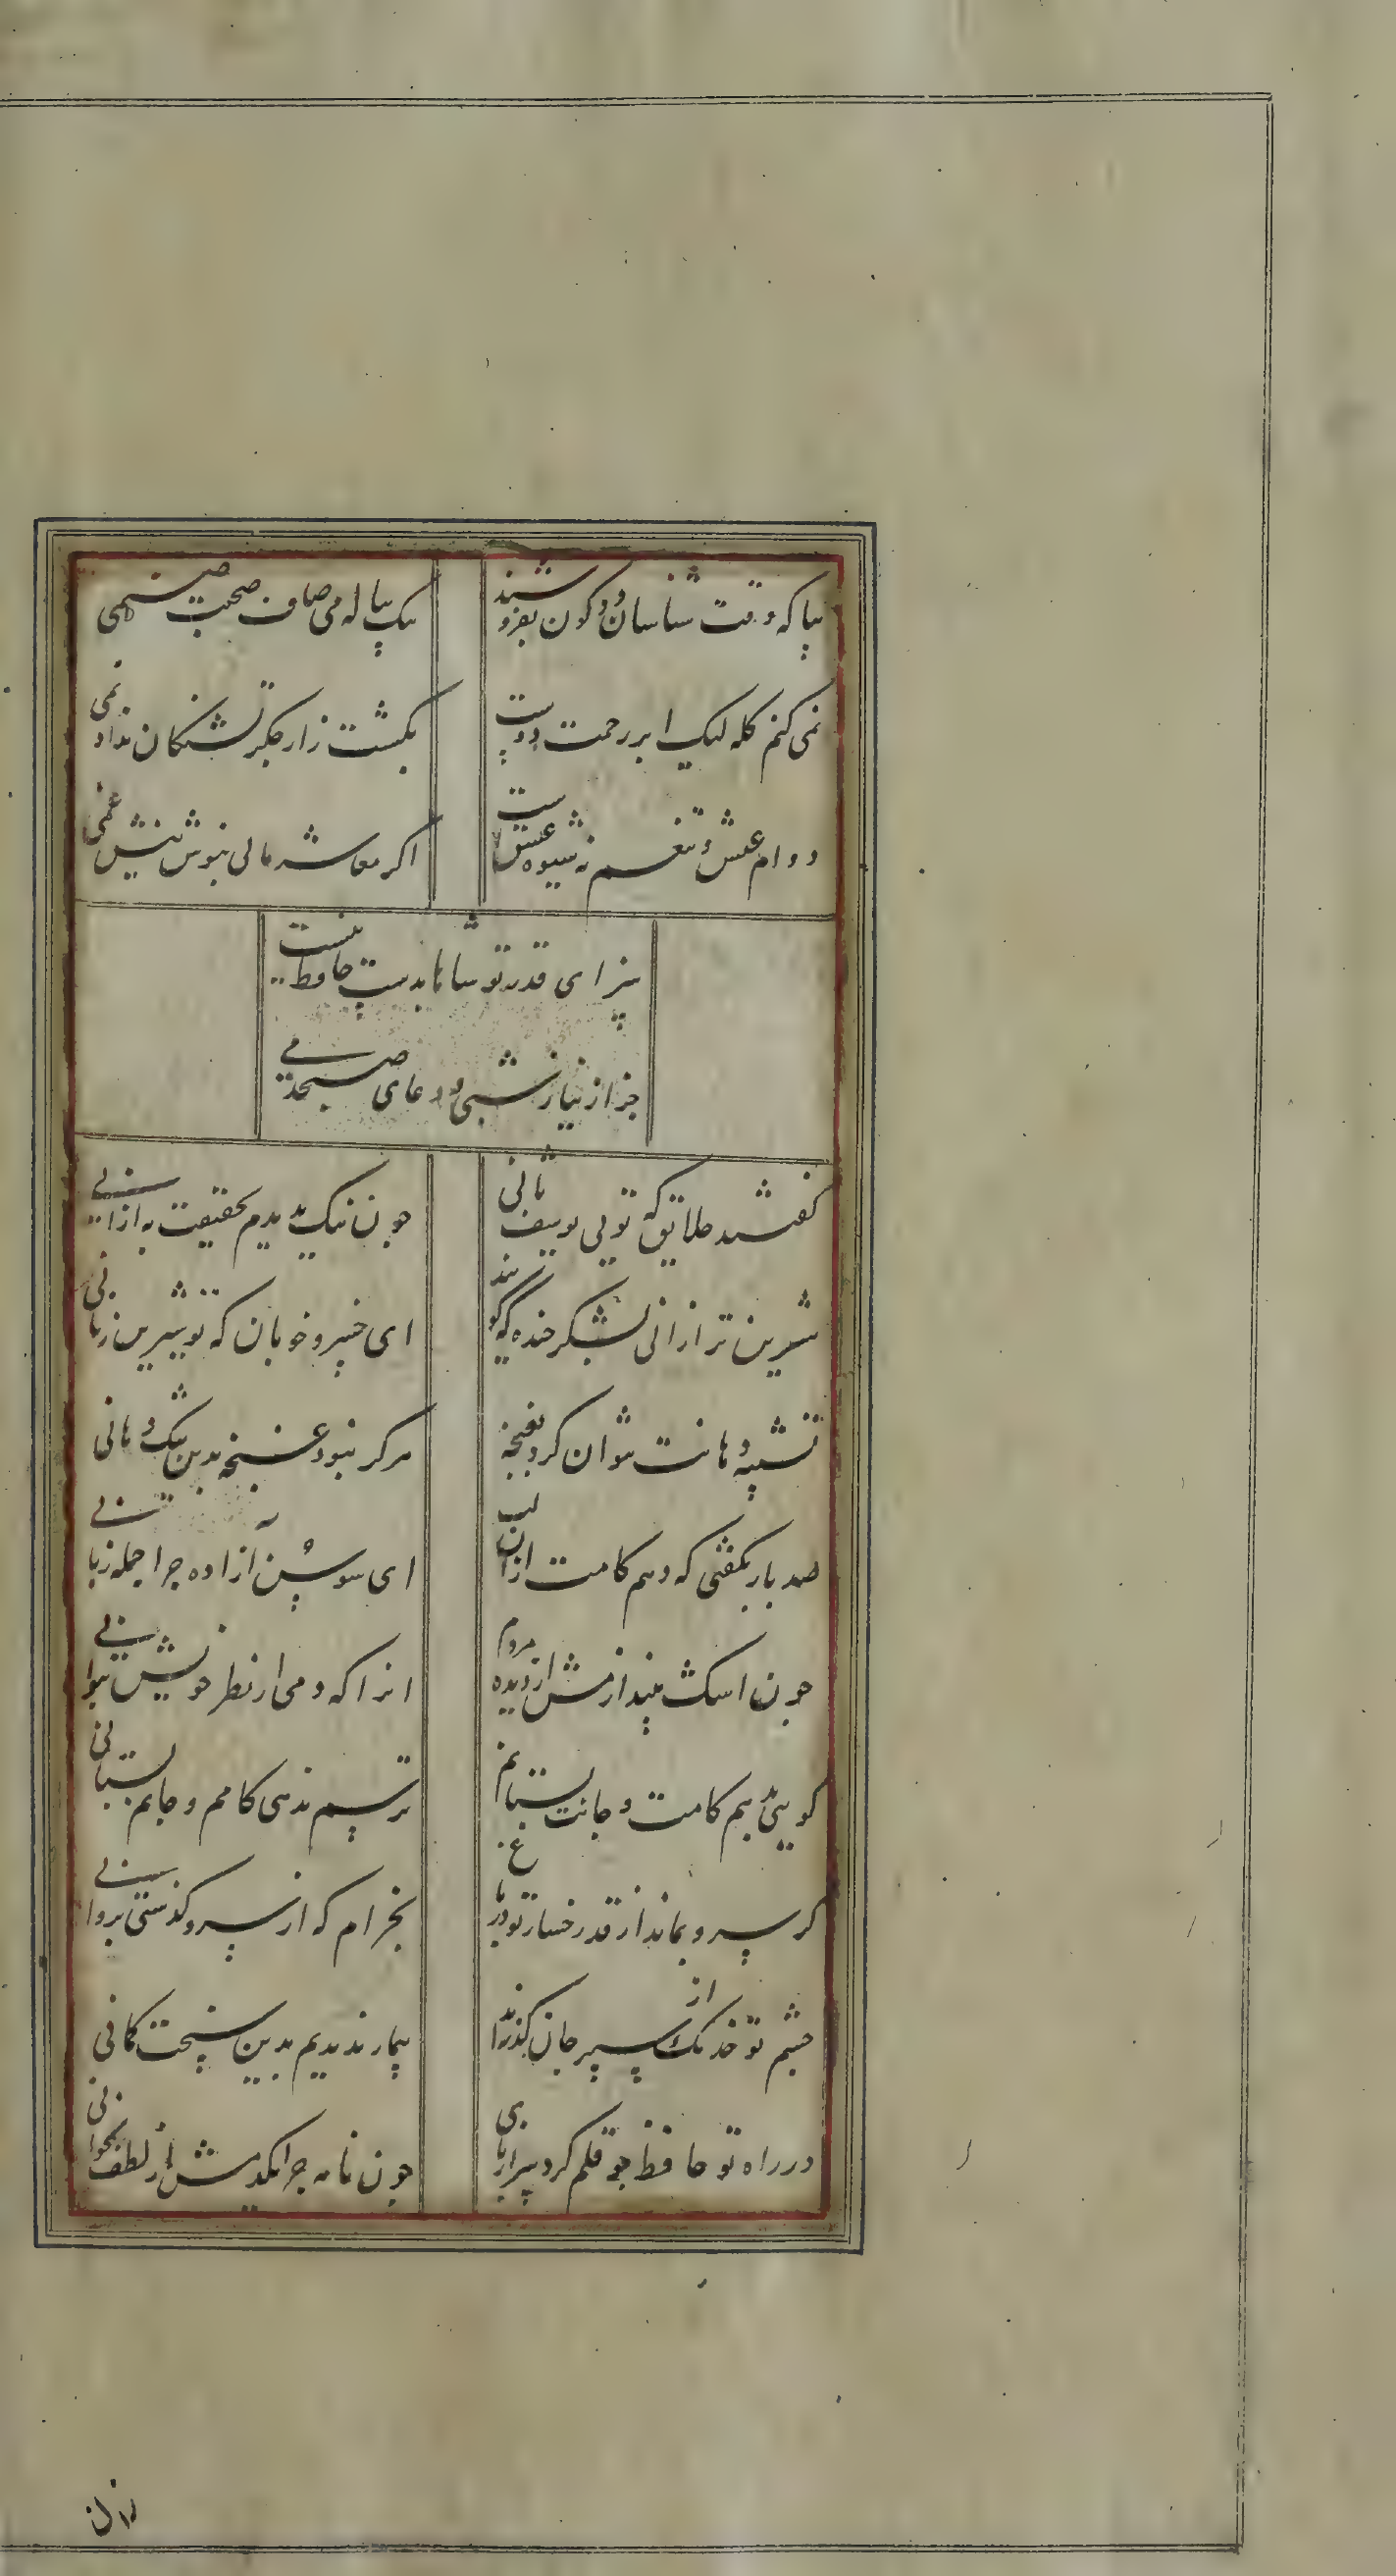 بیا که وقت شناسان دو کون بفروشند
بیک پیاله می صاف صحبت صنمی
نمی کنم گله لیک ابر رحمت دوست
بکشت زار جگر تشنکان نداد نمی
دوام عیش و تنعم نه شیوه عشق است
اکر معاشر مائی بنوش نیش غمی
سزای قدر تو شاها بدست حافظ نیست
جز از نیاز شبی و دعای صبحدمی
کفتند خلایق که تویی یوسف ثانی
چون نیک بدیدم بحقیقت به ازانی
شیرین تر ازانی بشکر خنده که گویند
ای خسرو خوبان که تو شیرین زمانی
تشبیه دهانت نتوان کرد بغنچه
هرکز نبود غنچه بدین تنک دهانی
صد بار بکفتی که دهم کامت ازان لب
ای سوسن آزاده چرا جمله زبانی
چون اشک بیندازمش از دیده مردم
انرا که دمی از نظر خویش برانی
کویی بدهم کامت و جانت بستانم
ترسم ندهی کامم و جانم بستانی
کر سرو بماند از قد رخسار تو در باغ
بخرام که از سرو کذشتی بروانی
چشم تو خدنک از سپر جان کذراند
بیمار ندیدیم بدین سخت کمانی
در راه تو حافظ چو قلم کرد سر از پای
چون نامه چرا یکدمش از لطف نخوانی